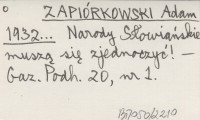 ZAPIÓRKOWSKI Adam
1932... Narody Słowiańskie
muszą się zjednoczyć! —
Gaz. Podh. 20, nr 1.